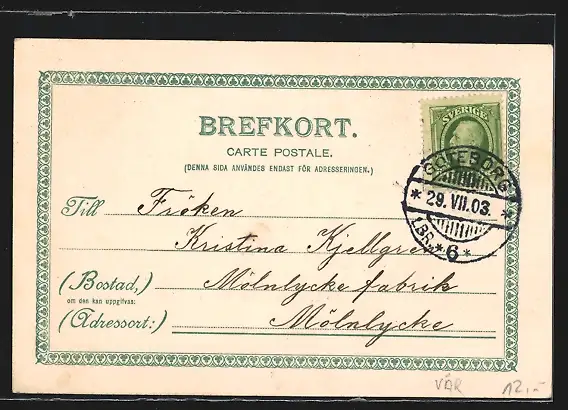 BREFKORT.
CARTE POSTALE.
(DENNA SIDA ANVÄNDES ENDAST FÖR ADRESSERINGEN.)
SVERIGE
GÖTEBORG
* 29. VII. 03. *
1.BR. * 6 *
Till Fröken
Kristina Kjellgren
(Bostad,) Mölnlycke fabrik
om den kan uppgifvas:
(Adressort:) Mölnlycke
VÄR 12,-